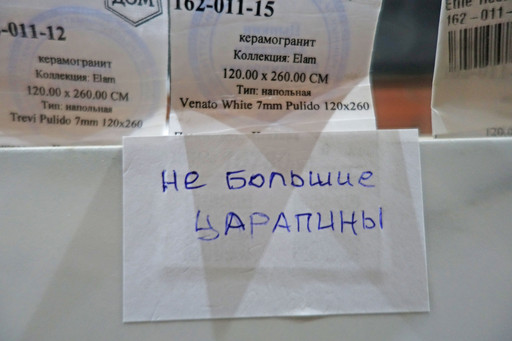 ДОМ
-011-12
керамогранит
Коллекция: Elam
120.00 x 260.00 СМ
Тип: напольная
Trevi Pulido 7mm 120x260
162-011-15
керамогранит
Коллекция: Elam
120.00 x 260.00 СМ
Тип: напольная
Venato White 7mm Pulido 120x260
162-011-
не большие
царапины